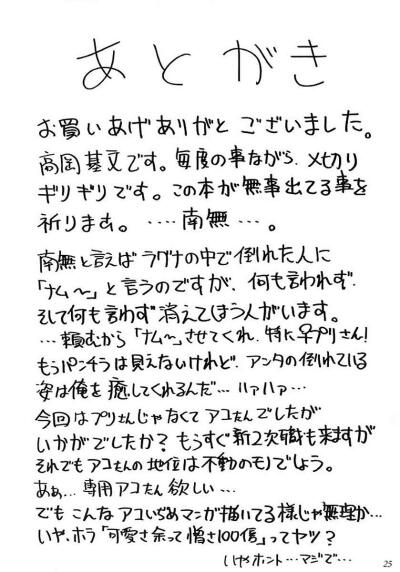 あとがき
お買いあげありがとうございました。
高岡基文です。毎度の事ながら、〆切り
ギリギリです。この本が無事出てる事を
祈ります。‥‥南無…。
南無と言えばラグナの中で倒れた人に
「ナム～」と言うのですが、何も言われず、
そして何も言わず消えてしまう人がいます。
…頼むから「ナム～」させてくれ、特に♀プリさん!
もうパンチラは見えないけれど、アンタの倒れている
姿は俺を癒してくれるんだ…ハァハァ…
今回はプリさんじゃなくてアコたんでしたが
いかがでしたか?もうすぐ新2次職も来ますが
それでもアコたんの地位は不動のモノでしょう。
あぁ…専用アコたん欲しい…
でもこんなアコいぢめマンガ描いてる様じゃ無理か…
いや、ホラ「可愛さ余って憎さ100倍」ってヤツ?
いやホント…マジで…
25